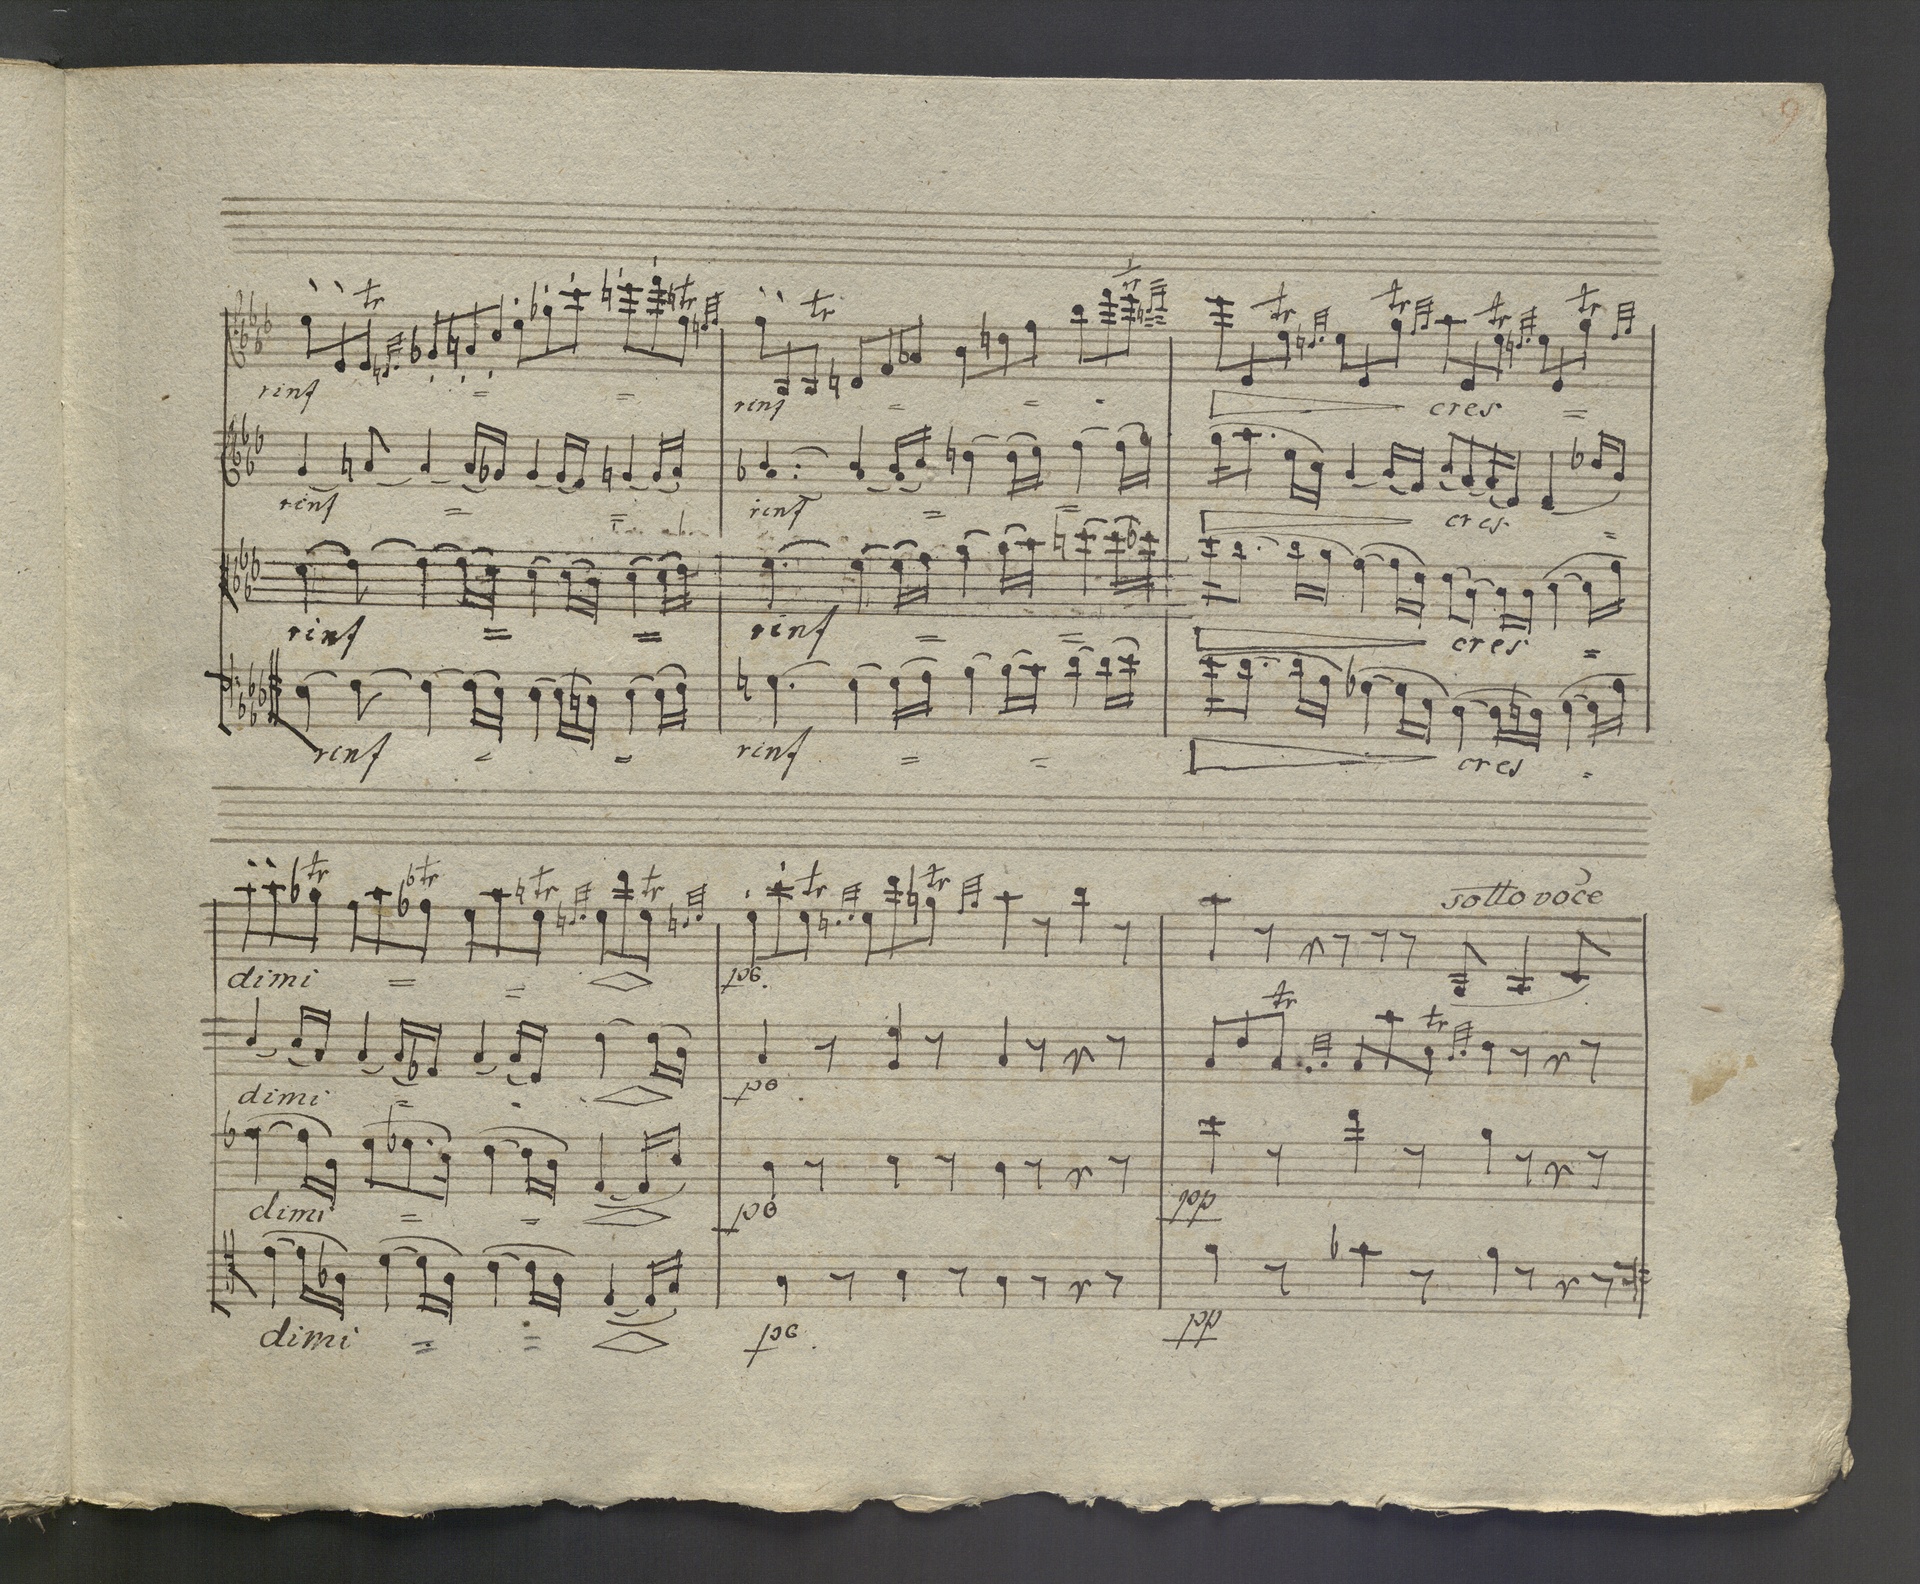 9
tr tr
rinf = = rinf = = -
tr tr tr tr tr
cres =
rinf = = rinf = = cres =
rinf = = rinf = = cres =
rinf = = rinf = = cres =
tr tr tr tr tr tr sotto voce
dimi = = po.
tr tr
dimi = - po
dimi = = po pp
dimi = = po. pp